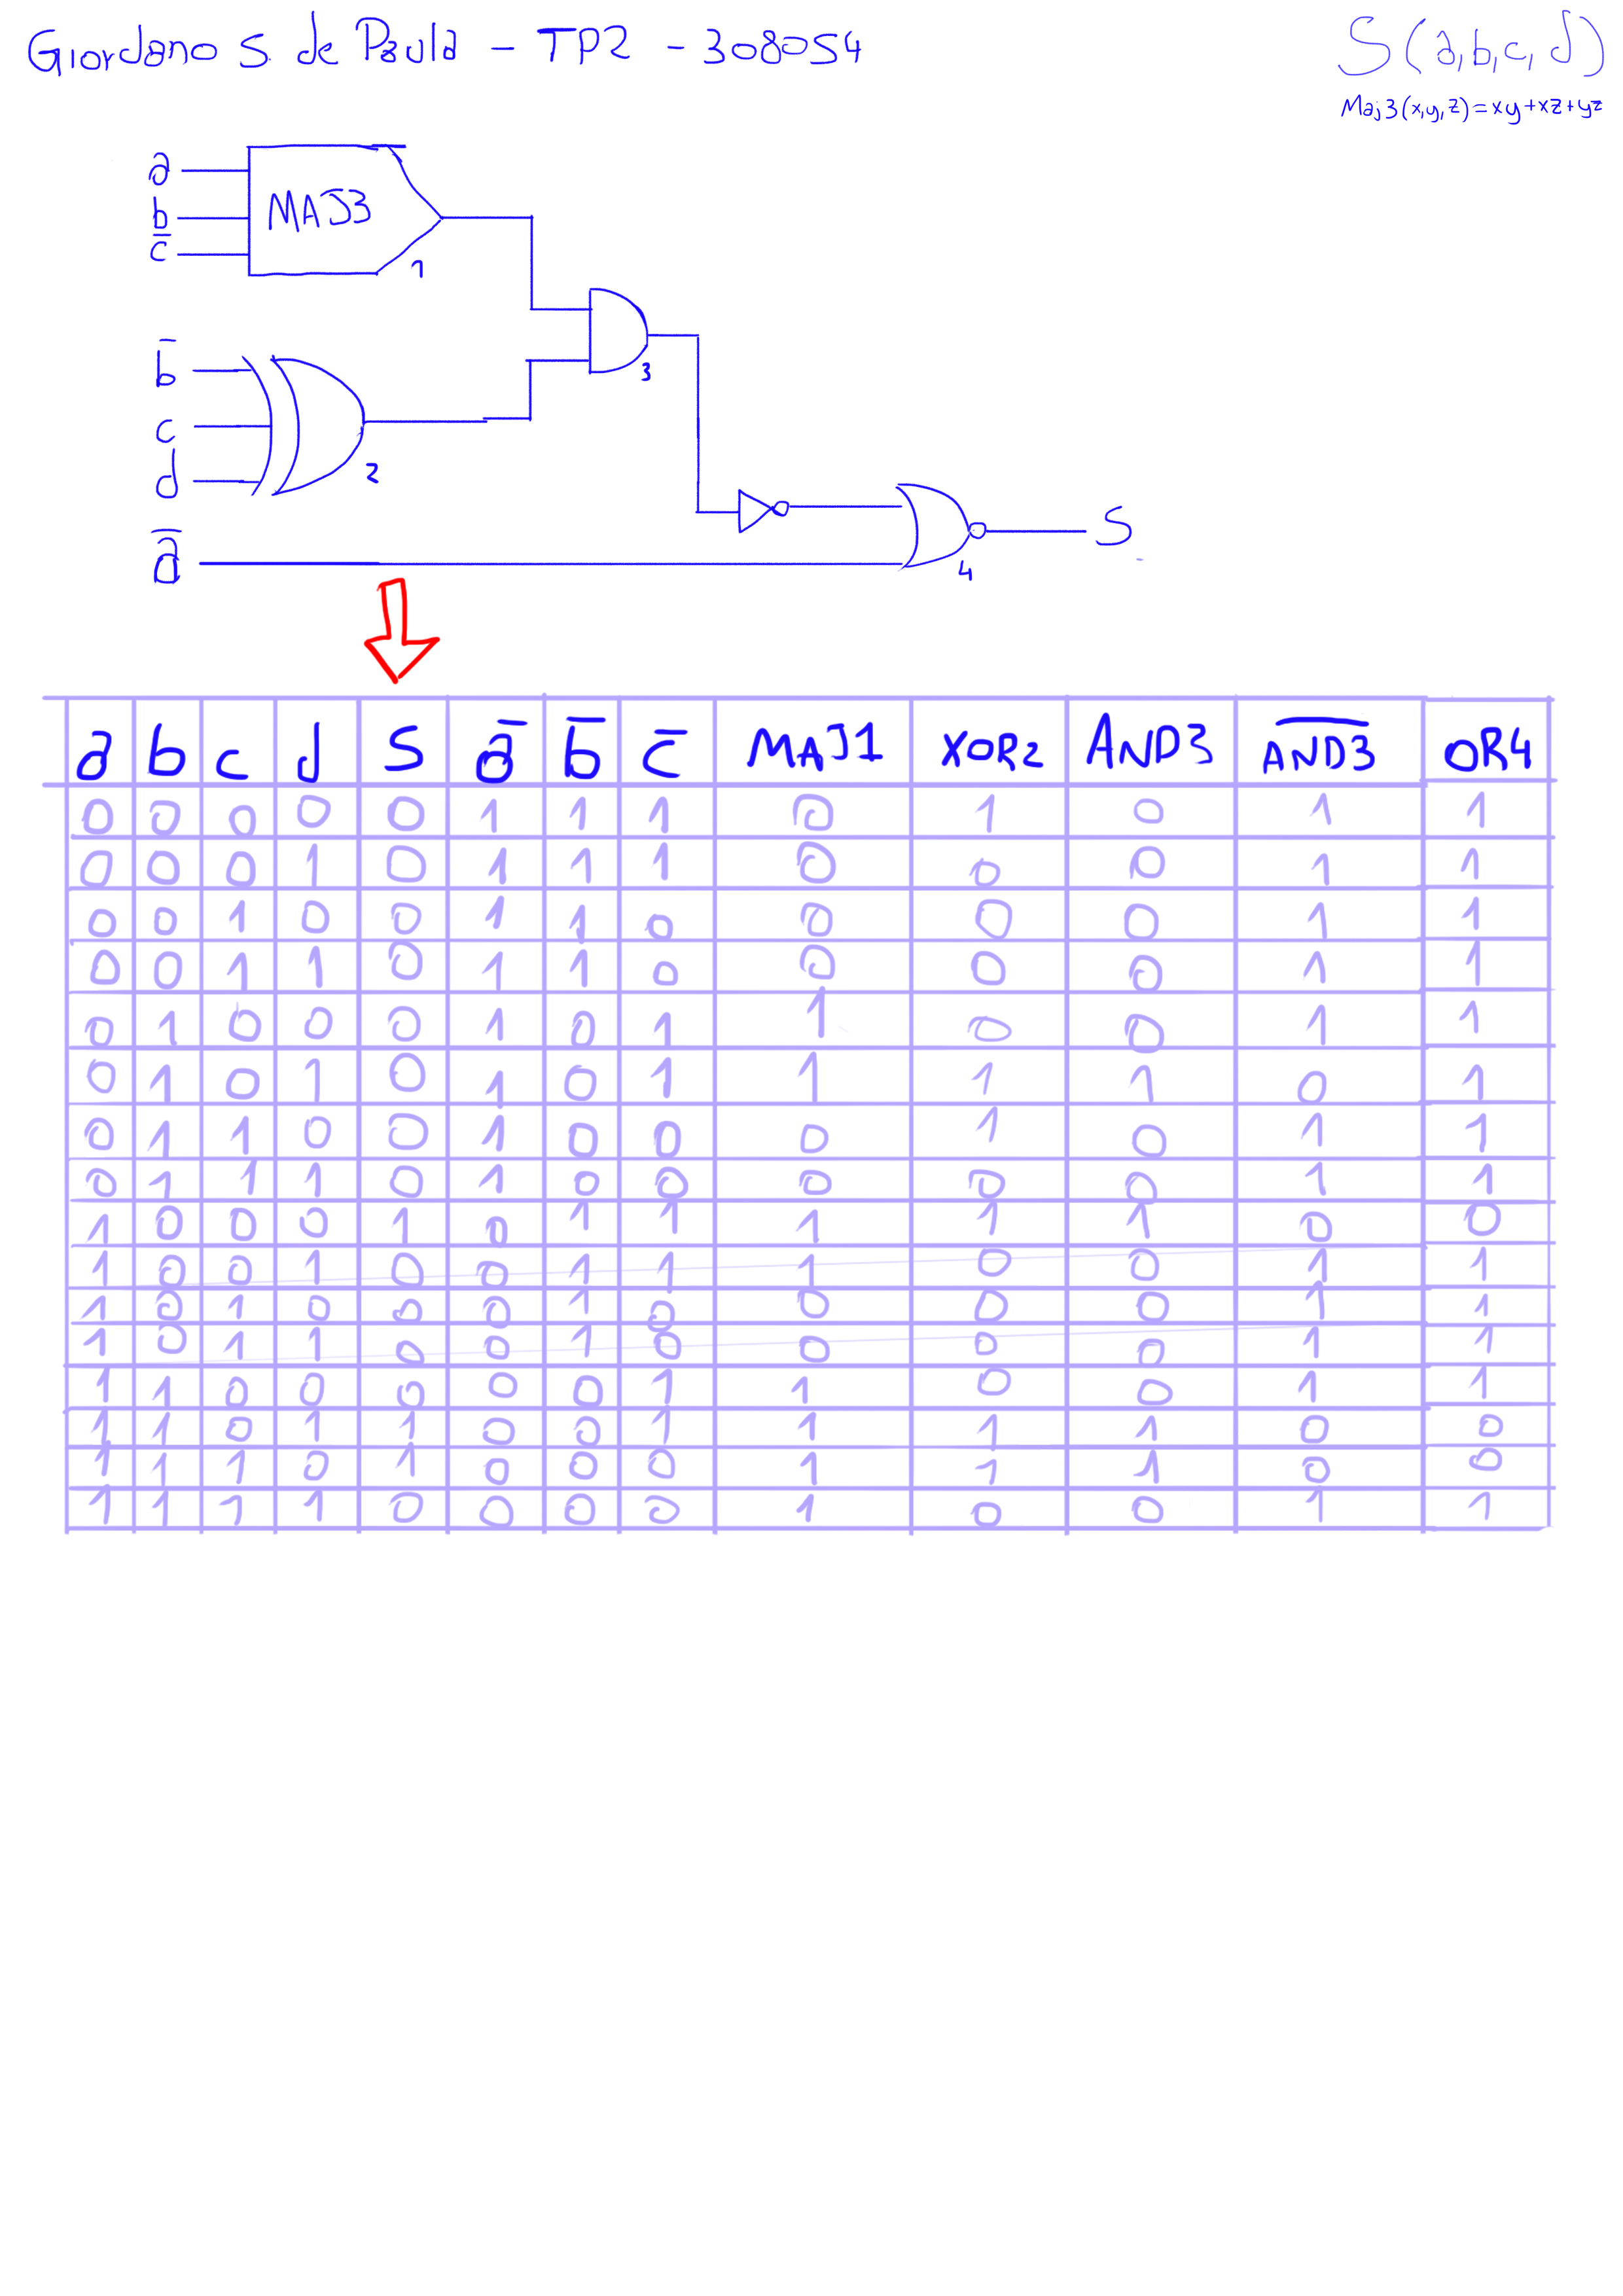 Giordano S. de Paula - TP2 - 308054
S(a,b,c,d)
Maj3(x,y,z)=xy+xz+yz
a
b
c̅
MAJ3
1
b̅
c
d
2
3
a̅
4
S
a b c d S a̅ b̅ c̅ MAJ1 XOR2 AND3 A̅N̅D̅3̅ OR4
0 0 0 0 0 1 1 1 0 1 0 1 1
0 0 0 1 0 1 1 1 0 0 0 1 1
0 0 1 0 0 1 1 0 0 0 0 1 1
0 0 1 1 0 1 1 0 0 0 0 1 1
0 1 0 0 0 1 0 1 1 0 0 1 1
0 1 0 1 0 1 0 1 1 1 1 0 1
0 1 1 0 0 1 0 0 0 1 0 1 1
0 1 1 1 0 1 0 0 0 0 0 1 1
1 0 0 0 1 0 1 1 1 1 1 0 0
1 0 0 1 0 0 1 1 1 0 0 1 1
1 0 1 0 0 0 1 0 0 0 0 1 1
1 0 1 1 0 0 1 0 0 0 0 1 1
1 1 0 0 0 0 0 1 1 0 0 1 1
1 1 0 1 1 0 0 1 1 1 1 0 0
1 1 1 0 1 0 0 0 1 1 1 0 0
1 1 1 1 0 0 0 0 1 0 0 1 1